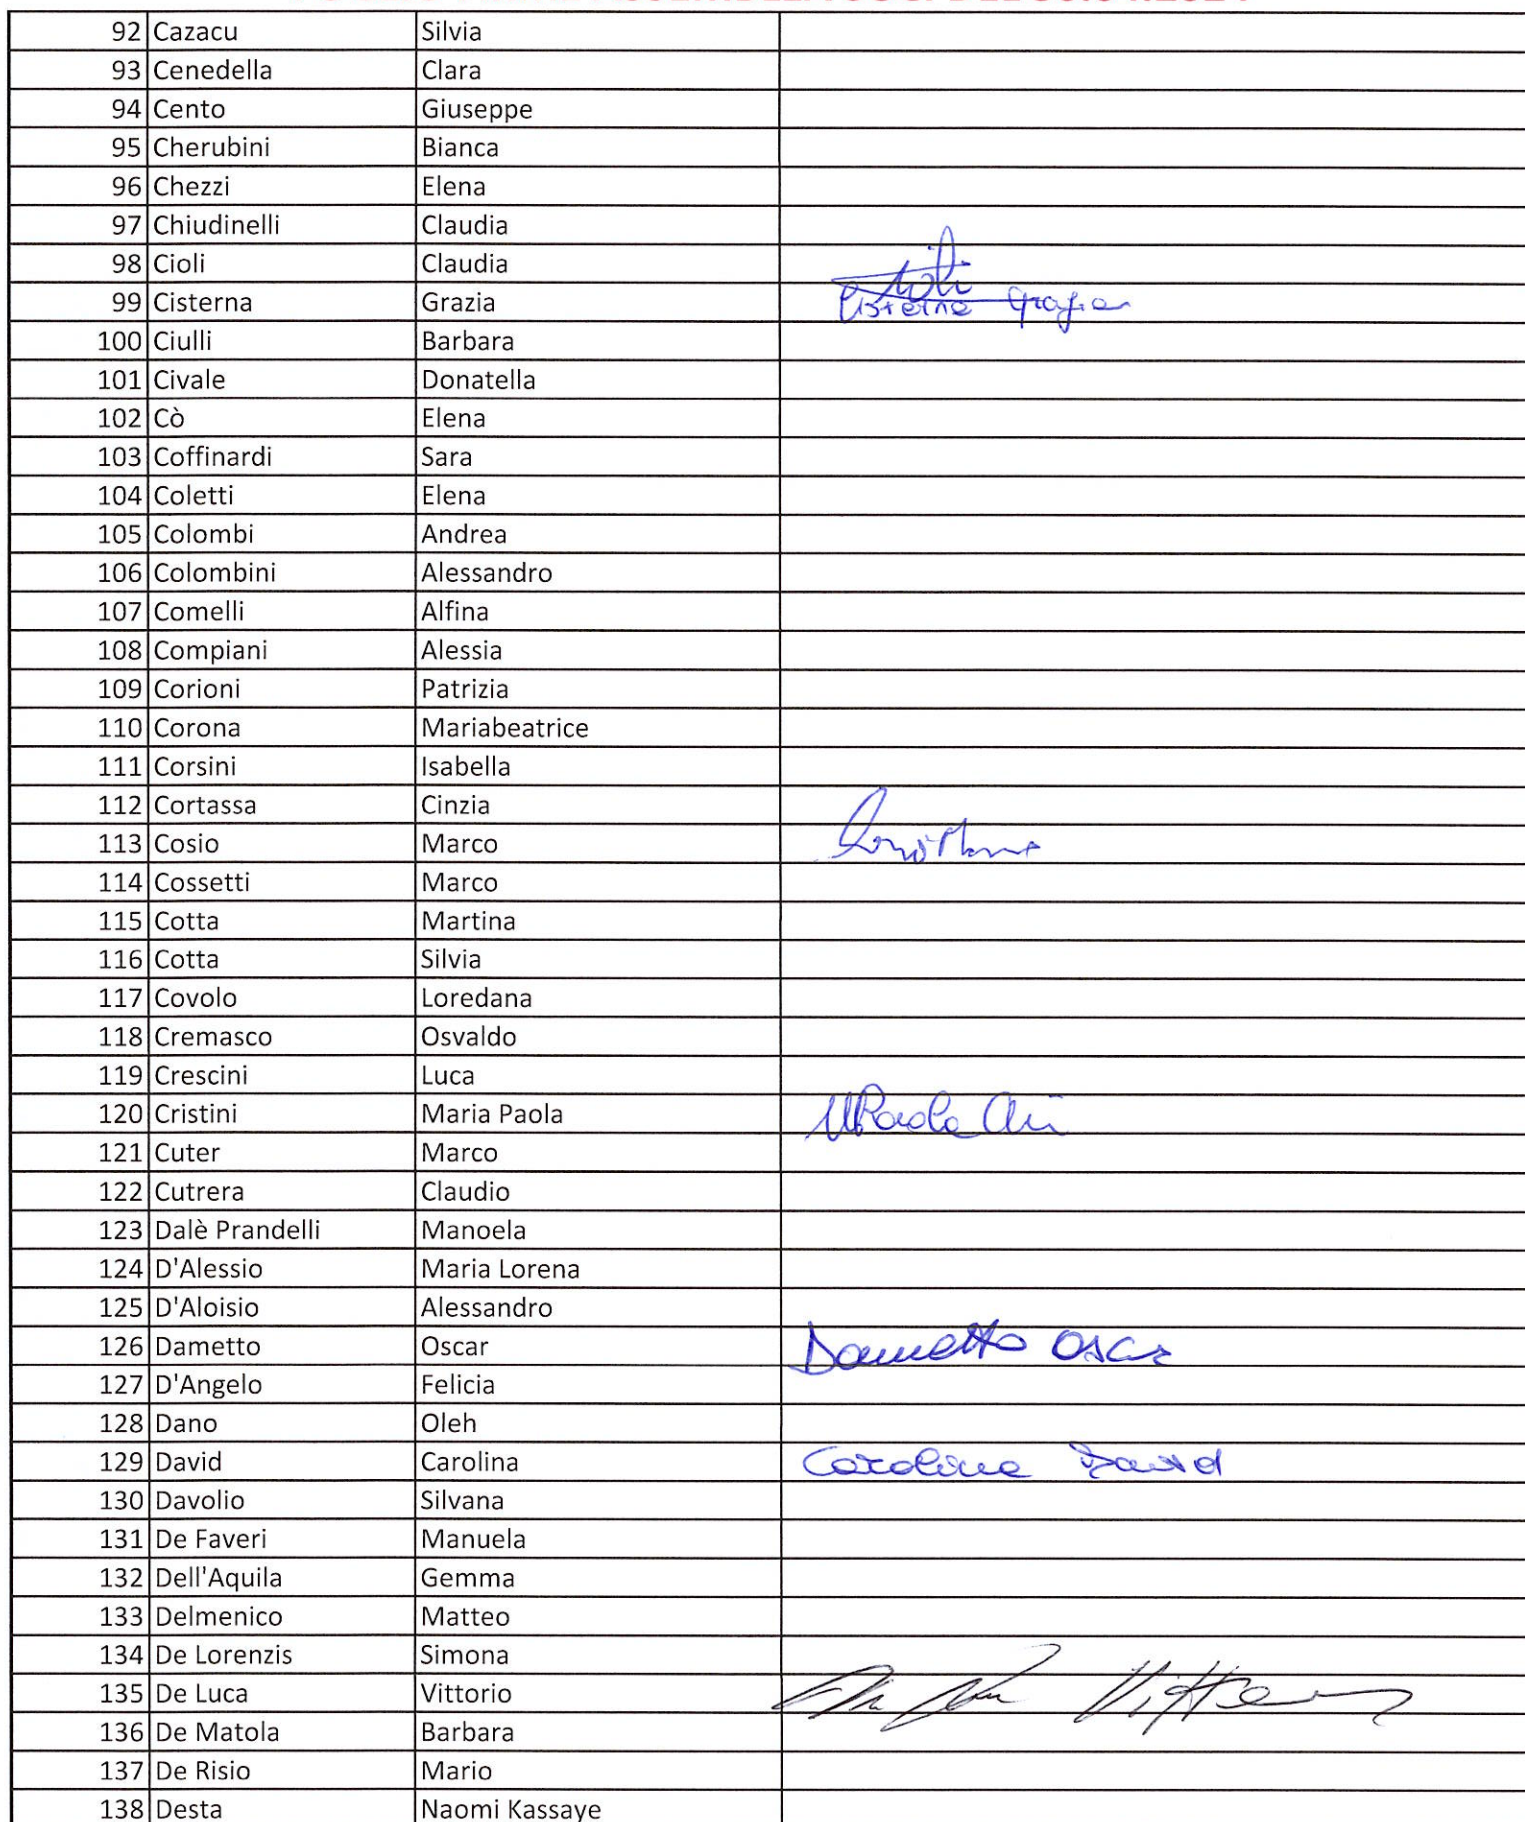 92 Cazacu Silvia
93 Cenedella Clara
94 Cento Giuseppe
95 Cherubini Bianca
96 Chezzi Elena
97 Chiudinelli Claudia
98 Cioli Claudia
99 Cisterna Grazia Cisterna Grazia
100 Ciulli Barbara
101 Civale Donatella
102 Cò Elena
103 Coffinardi Sara
104 Coletti Elena
105 Colombi Andrea
106 Colombini Alessandro
107 Comelli Alfina
108 Compiani Alessia
109 Corioni Patrizia
110 Corona Mariabeatrice
111 Corsini Isabella
112 Cortassa Cinzia
113 Cosio Marco
114 Cossetti Marco
115 Cotta Martina
116 Cotta Silvia
117 Covolo Loredana
118 Cremasco Osvaldo
119 Crescini Luca
120 Cristini Maria Paola MPaola
121 Cuter Marco
122 Cutrera Claudio
123 Dalè Prandelli Manoela
124 D'Alessio Maria Lorena
125 D'Aloisio Alessandro
126 Dametto Oscar Dametto Oscar
127 D'Angelo Felicia
128 Dano Oleh
129 David Carolina Carolina David
130 Davolio Silvana
131 De Faveri Manuela
132 Dell'Aquila Gemma
133 Delmenico Matteo
134 De Lorenzis Simona
135 De Luca Vittorio
136 De Matola Barbara
137 De Risio Mario
138 Desta Naomi Kassaye